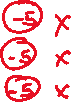 -5 x
-5 x
-5 x